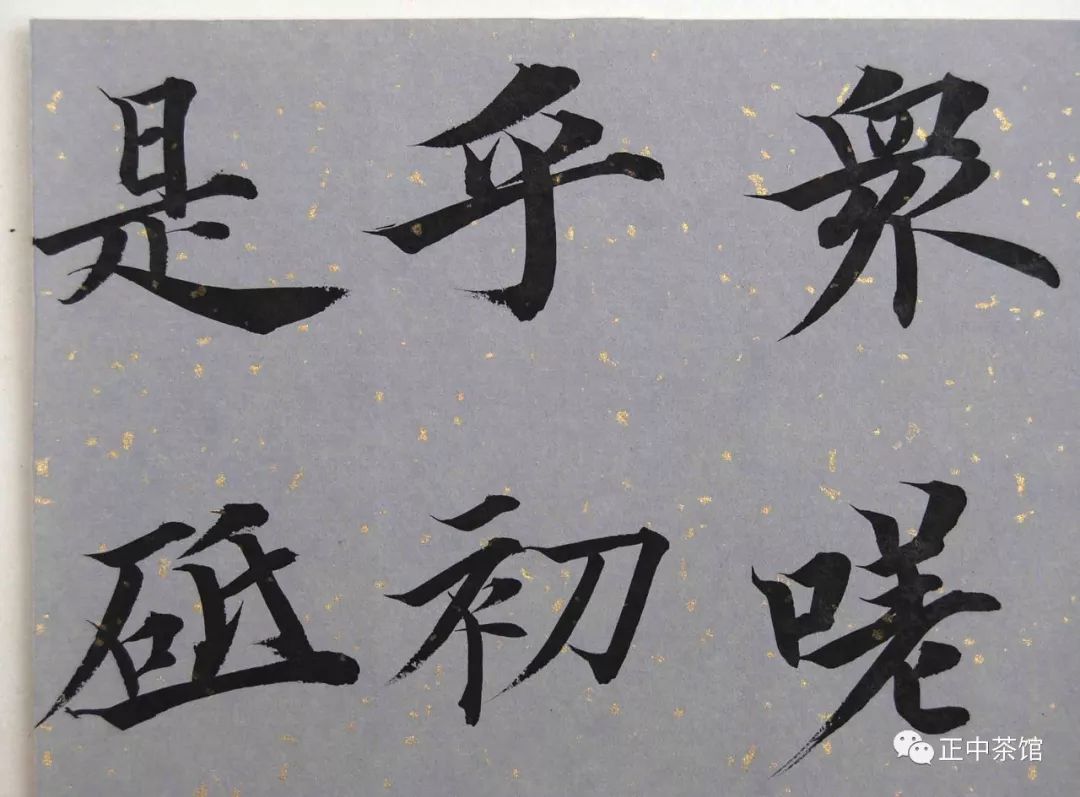 衆嗜
乎初
是砥
正中茶馆